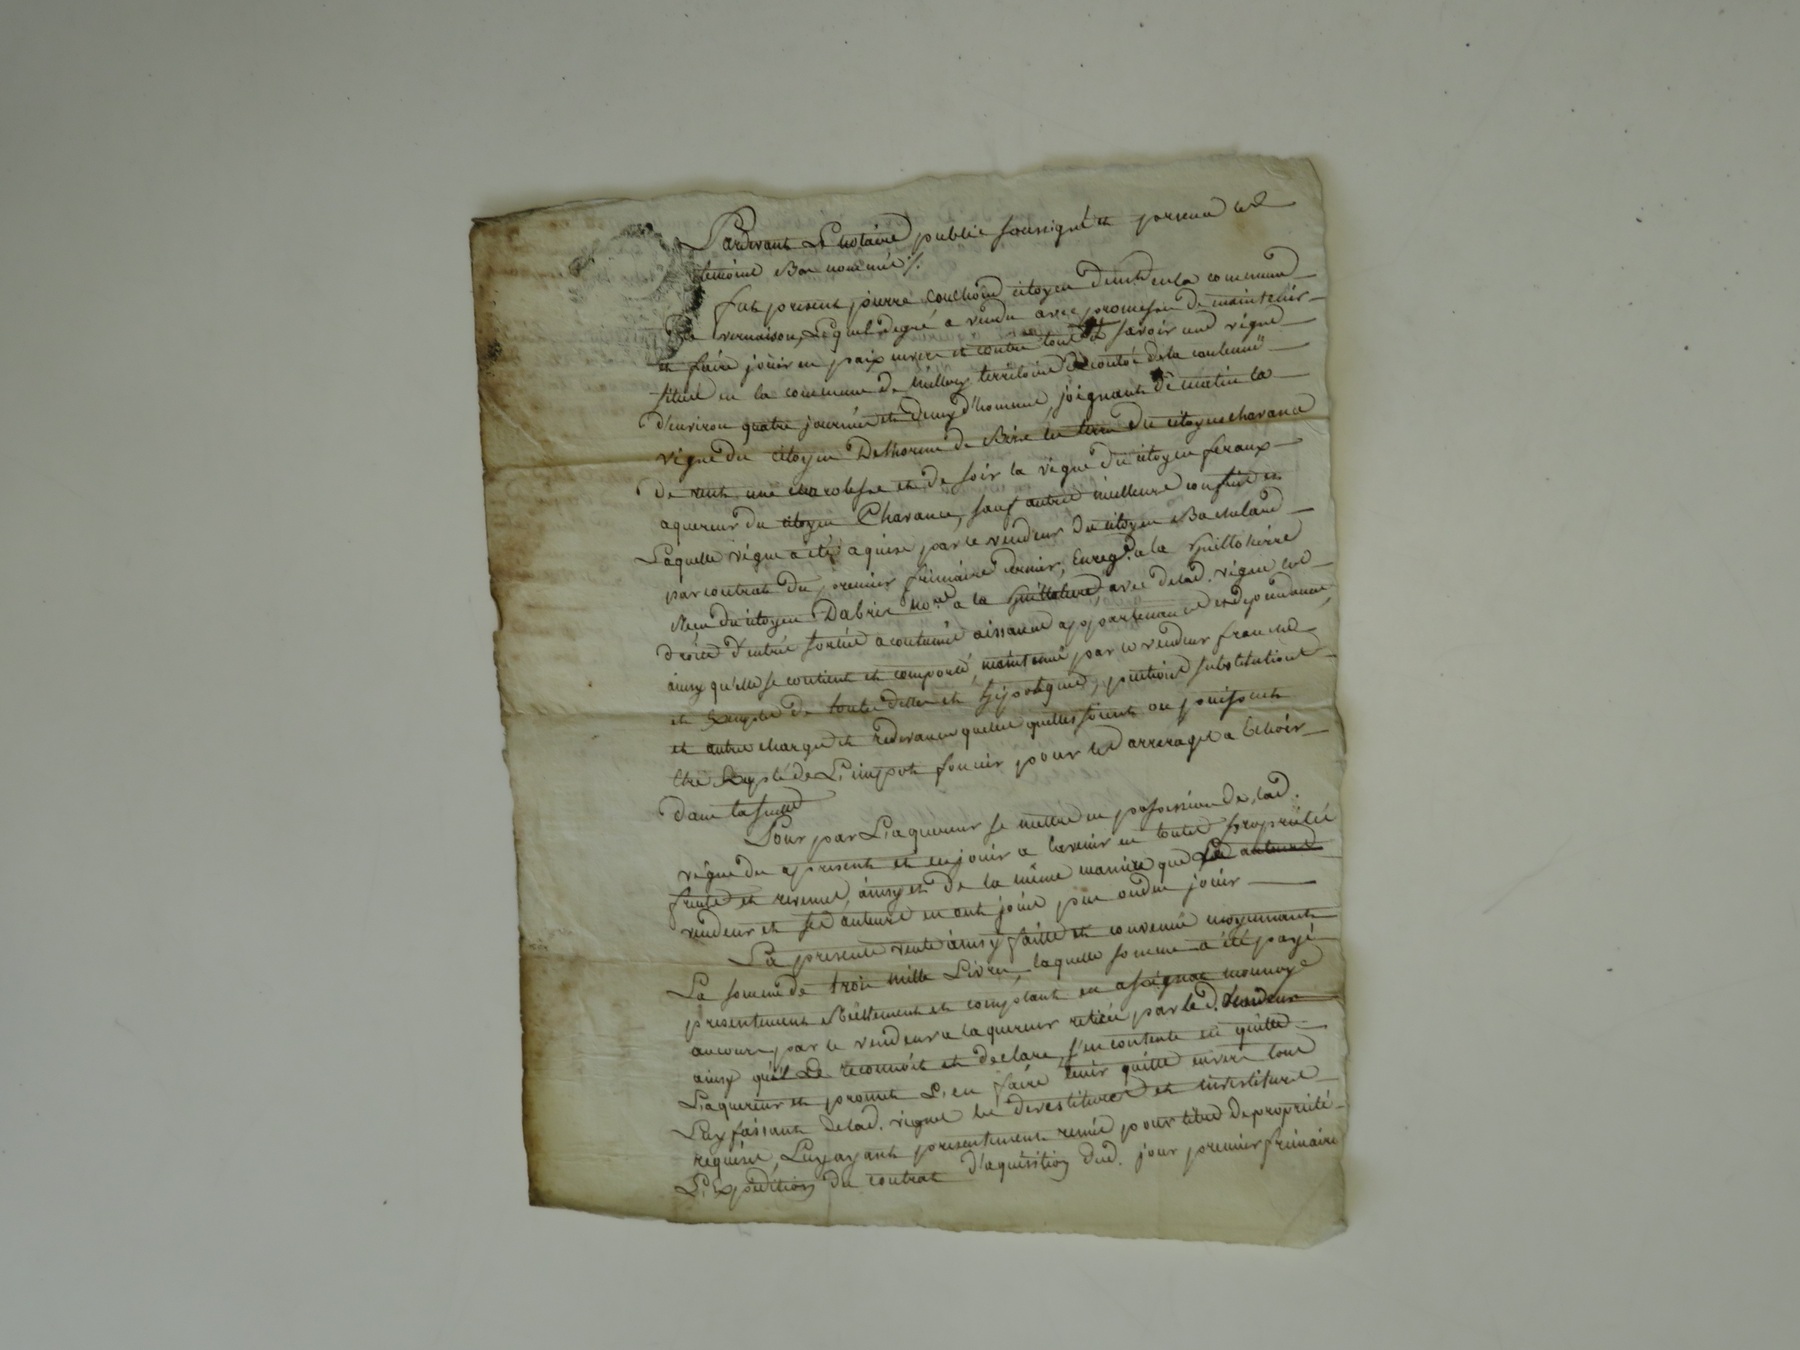 Pardevant Le notaire public soussigné et presence des
temoins Bas nommés /.
fut present pierre Couchoud citoyen demt en la commune
de vernaison, Lequel degré a vendu avec promesse de maintenir
et faire jouir en paix envers et contre tous savoir une vigne
située en la commune de Millery territoire de la contenue
d'environ quatre journées et demy d'homme, joignant de matin la
vigne du citoyen Delhorme de Bize les terre du citoyen charance
de vent une et de soir la vigne du citoyen feraux
aquereur du citoyen Charance, sauf autres meilleurs confins
Laquelle vigne a été aquise par le vendeur du citoyen Bachelard
par contrat du premier frimaire dernier, Enregé. a la Guillotierre
Reçu du citoyen Dabrin nore a la Guillotiere, avec de lad. vigne ses
droits d'entrée sortie acoutumés aissance appartenance et dependance,
ainsy qu'elle se contient et comporte, maintenue par le vendeur franche
et Exempte de toutes dettes et hipoteques, pentions substitutions
et autres charges et redevances quelles quelles soient ou puissent
être Excepté de L'impot foncier pour les arrerages a Echoir
dans la suitte
Pour par L'aquereur se mettre en possession de lad.
vigne des apresent et en jouir a lavenir en toutes propriétés
fruits et revenus, ainsy et de la même manière que
vendeur et ses auteurs en ont joui pue ou due jouir
La presente vente ainsy faitte et convenue moyennant
La somme de trois mille Livres, laquelle somme a été payé
presentement réellement et comptant en assignat monnoye
au cours, par le vendeur a laquereur retiré par led. Vendeur
ainsy qu'il Le reconnoit et declare, s'en contente en quitte
L'aquereur et promet L'en faire tenir quitte envers tous
Luy faisant de lad. vigne les devestitures et investitures
requises, Luy ayant presentement remis pour titres de propriété
L'Expedition du contrat d'aquisition dud. jour premier frimaire